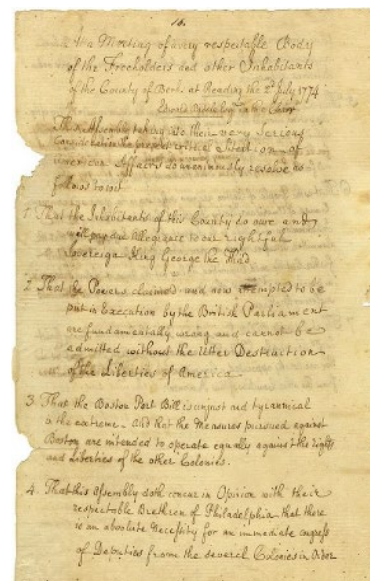 At a Meeting of a very respectable Body
of the Freeholders and other Inhabitants
of the County of Berks at Reading the 2d July 1774
Edward Biddle Esqr in the Chair
This Assembly taking into their very Serious
Consideration the present critical Situation of
American Affairs do unanimously resolve as
follows to wit
1. That the Inhabitants of this County do owe and
will pay due Allegiance to our rightful
Sovereign King George the Third
2. That the Powers claimed and now attempted to be
put in Execution by the British Parliament
are fundamentally wrong and cannot be
admitted without the Utter Destruction
of the Liberties of America.
3. That the Boston Port Bill is unjust and tyrannical
in the extreme. And that the Measures pursued against
Boston are intended to operate equally against the rights
and Liberties of the other Colonies.
4. That this Assembly doth concur in Opinion with their
respectable Brethren of Philadelphia that there
is an absolute Necessity for an immediate congress
of Deputies from the several Colonies in Order